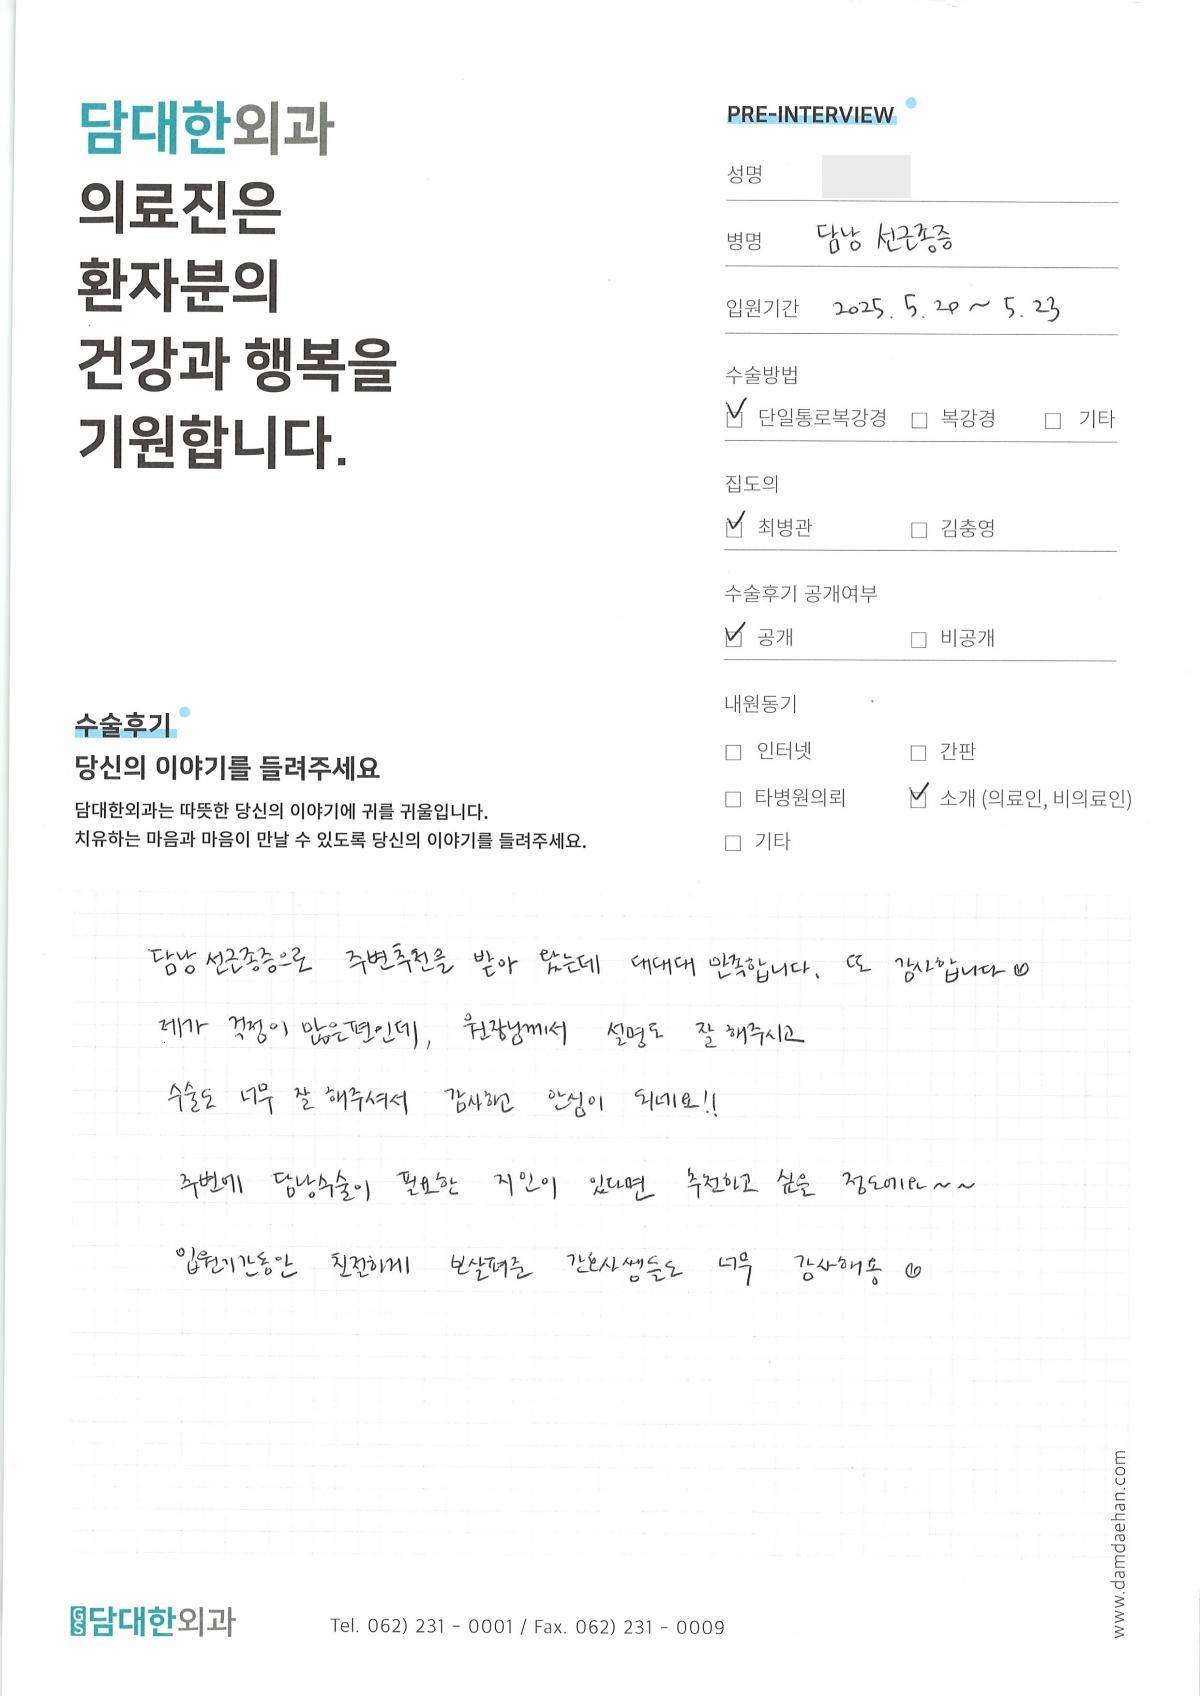 담대한외과
의료진은
환자분의
건강과 행복을
기원합니다.
PRE-INTERVIEW
성명
병명 담낭 선근종증
입원기간 2025. 5. 20 ~ 5. 23
수술방법
☑ 단일통로복강경 □ 복강경 □ 기타
집도의
☑ 최병관 □ 김충영
수술후기 공개여부
☑ 공개 □ 비공개
내원동기
□ 인터넷 □ 간판
□ 타병원의뢰 ☑ 소개 (의료인, 비의료인)
□ 기타
수술후기
당신의 이야기를 들려주세요
담대한외과는 따뜻한 당신의 이야기에 귀를 귀울입니다.
치유하는 마음과 마음이 만날 수 있도록 당신의 이야기를 들려주세요.
담낭 선근종증으로 주변추천을 받아 왔는데 대대대 만족합니다. 또 감사합니다
제가 걱정이 많은편인데, 원장님께서 설명도 잘 해주시고
수술도 너무 잘 해주셔서 감사하고 안심이 되네요!!
주변에 담낭수술이 필요한 지인이 있다면 추천하고 싶을 정도에요~~
입원기간동안 친절하게 보살펴준 간호사쌤들도 너무 감사해용
GS 담대한외과
Tel. 062) 231 - 0001 / Fax. 062) 231 - 0009
www.damdaehan.com